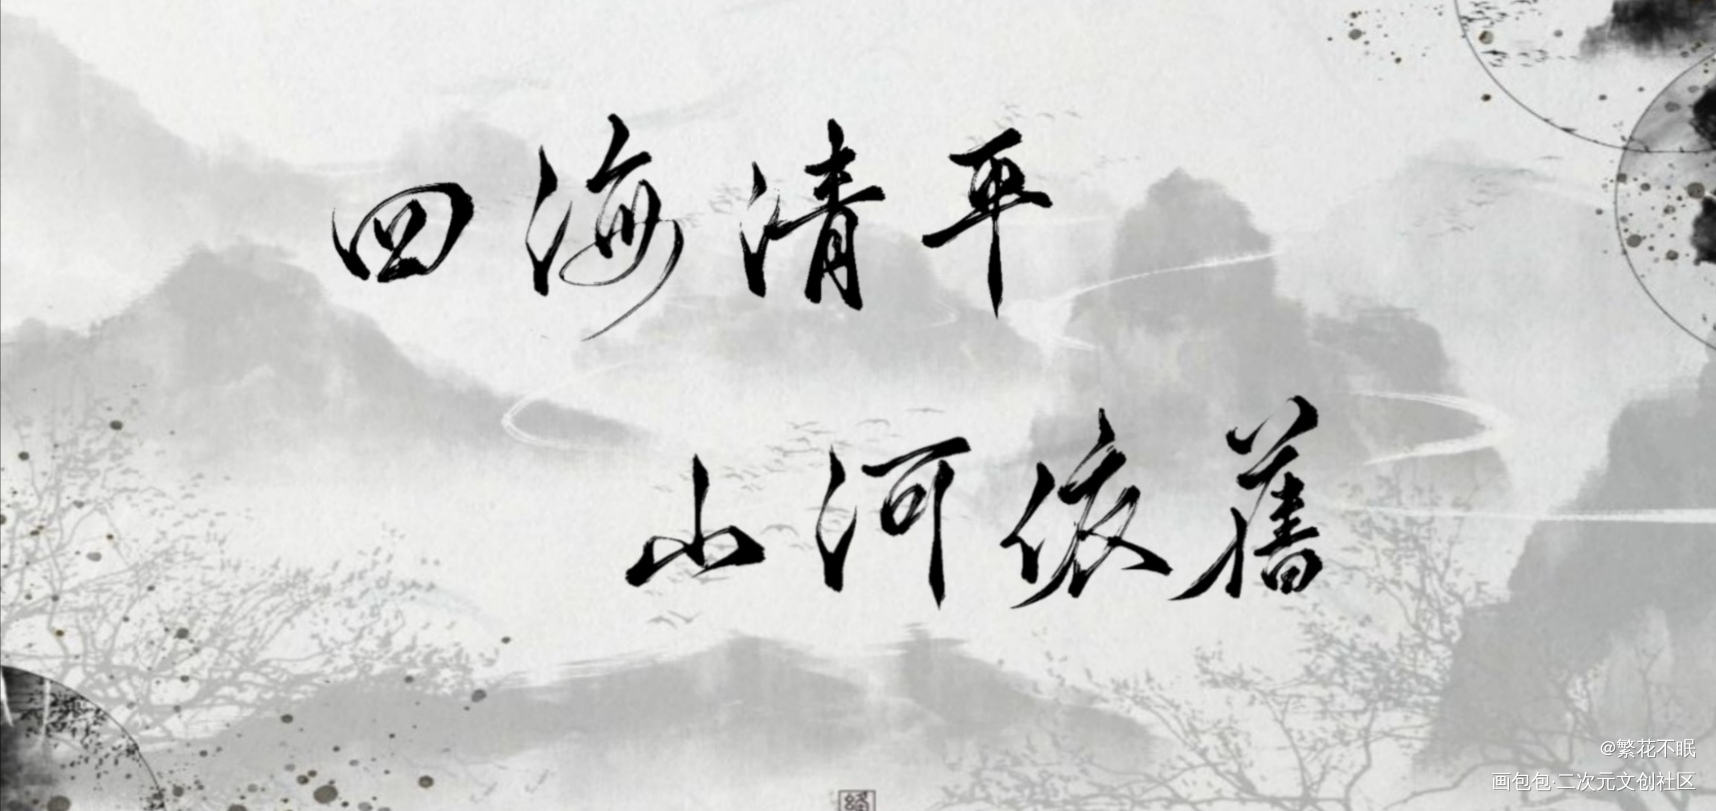 四海清平
山河依舊
@繁花不眠
画包包·二次元文创社区